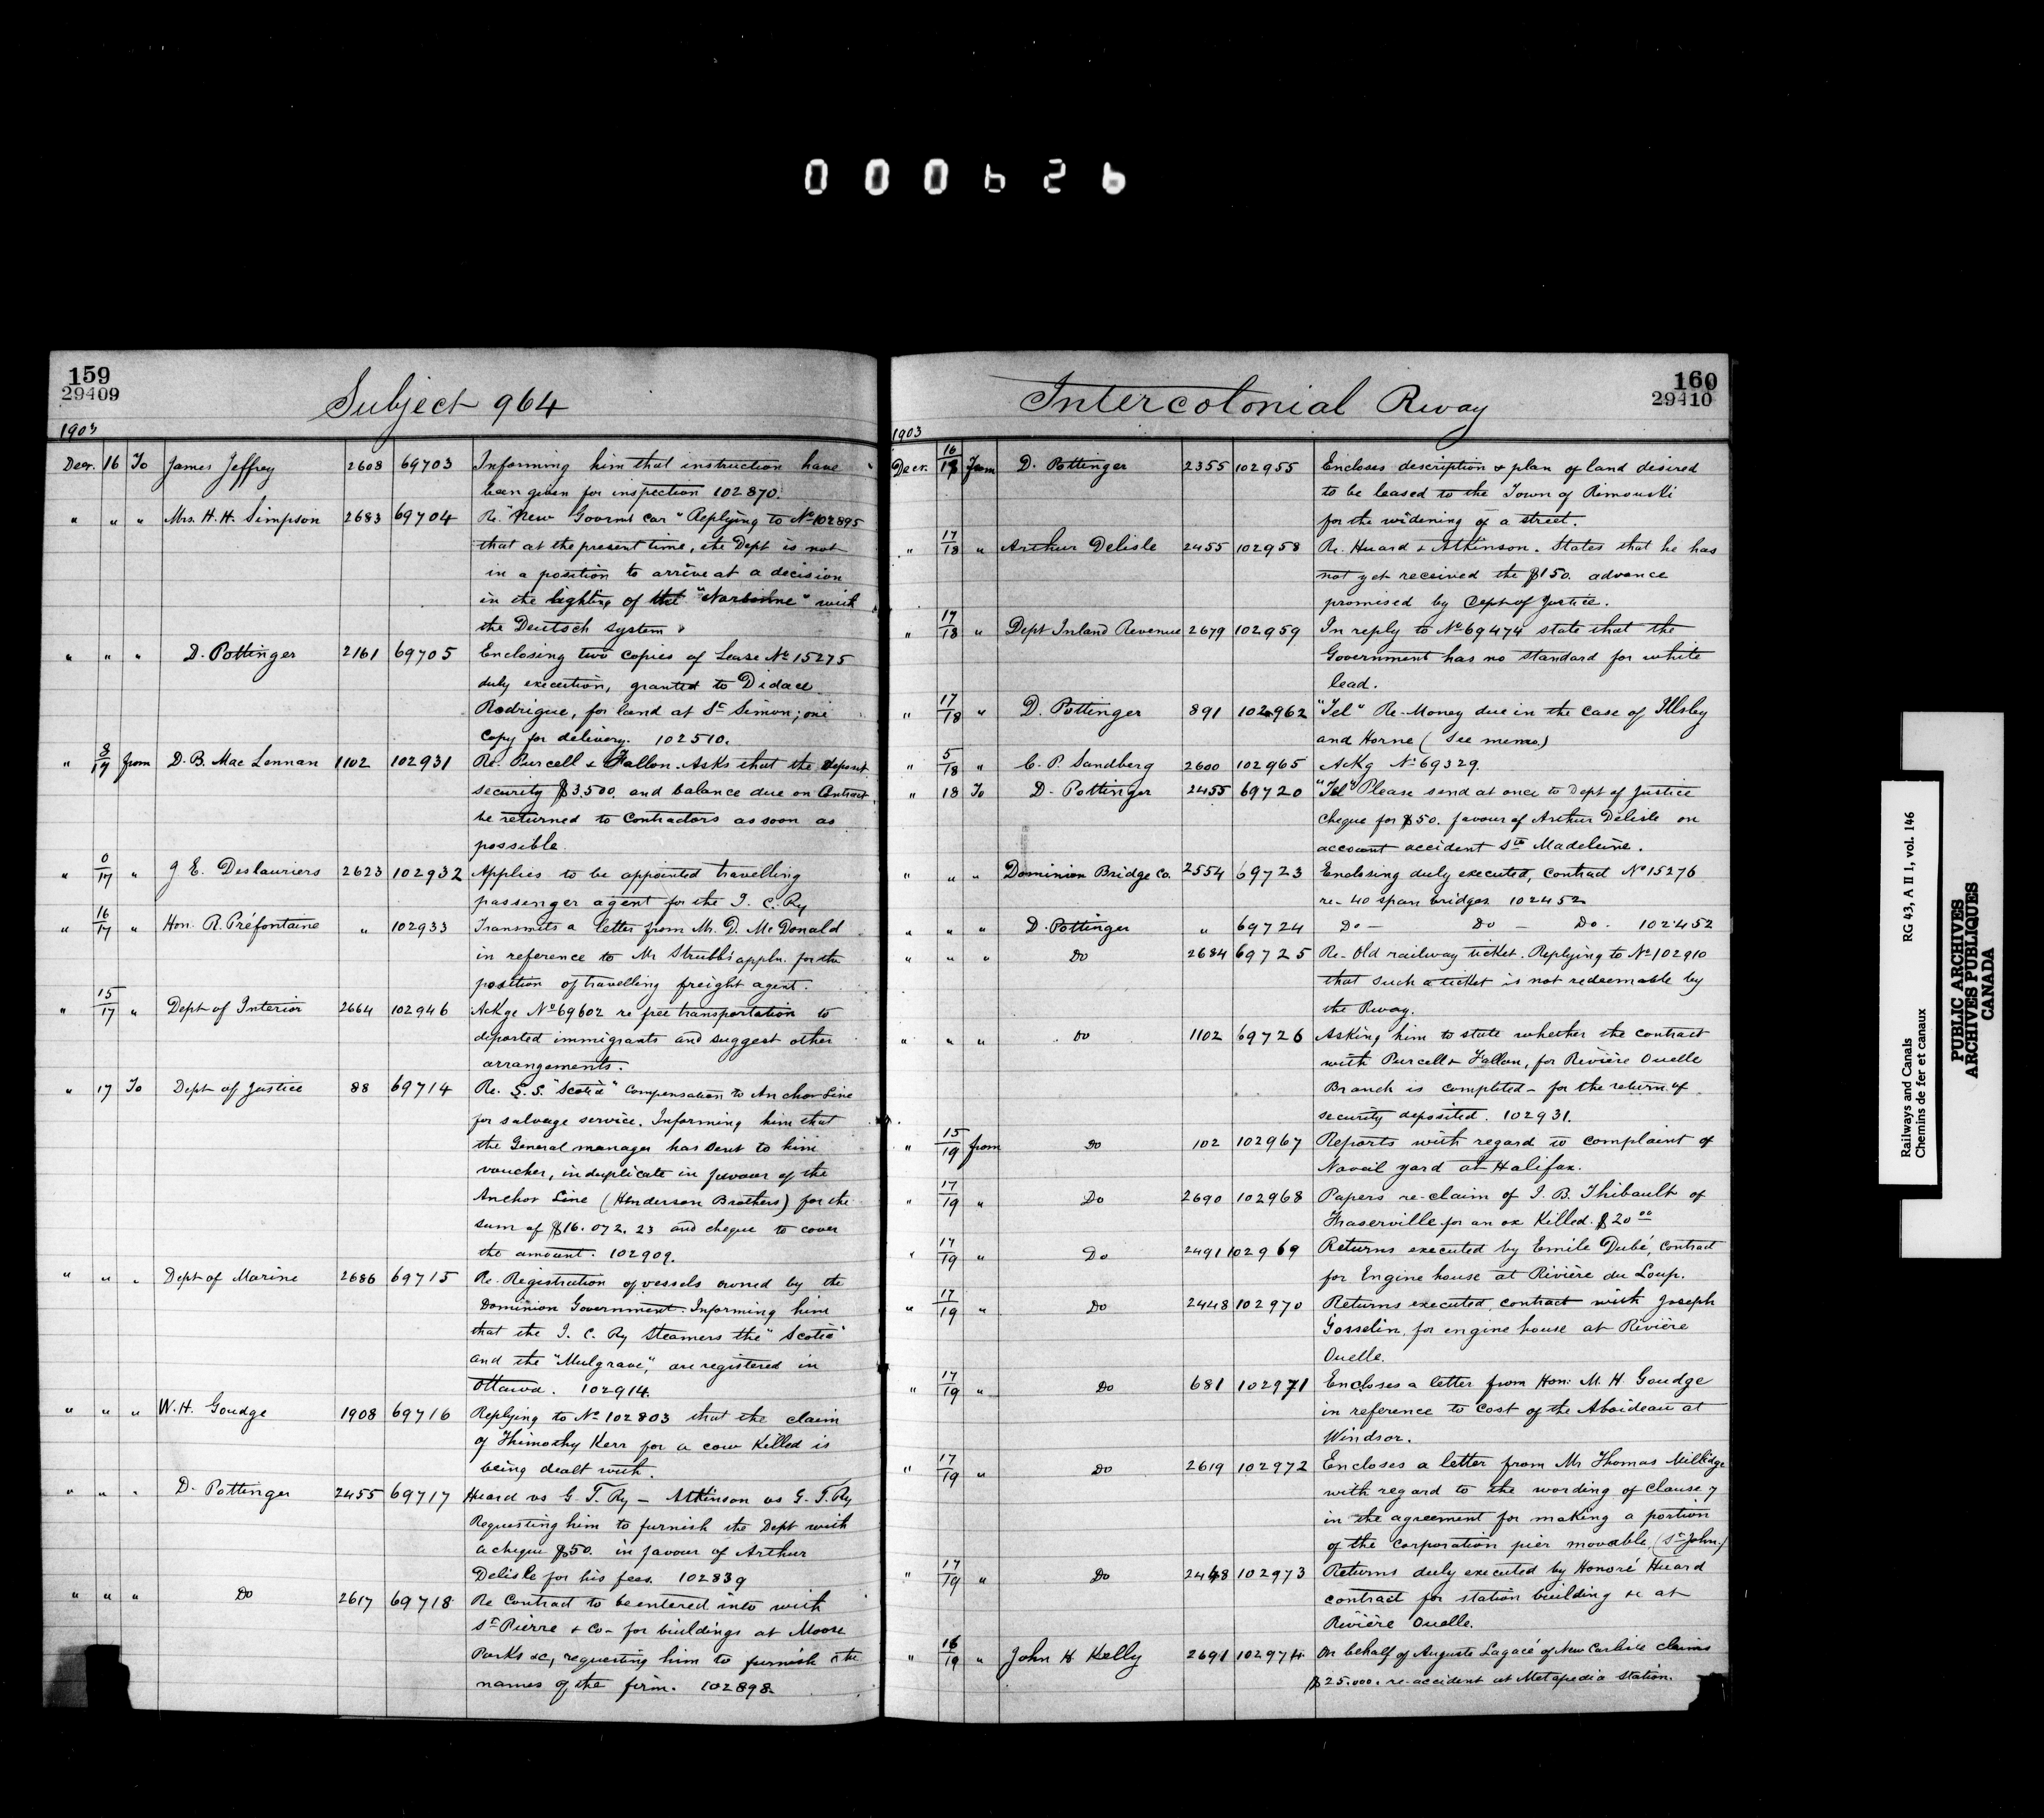 000626
159
29409
Subject 964
1903
Decr. 16 To James Jeffrey 2608 69703 Informing him that instruction have
been given for inspection 102870.
" " " Mrs. H. H. Simpson 2683 69704 Re. "New Govermt Car" Replying to No 102895
that at the present time, the Dept is not
in a position to arrive at a decision
in the lighting of the "Narbonne" with
the Deutsch system
" " " D. Pottinger 2161 69705 Enclosing two copies of Lease No 15275
duly execution, granted to Didace
Rodrigue, for land at St Simon; one
copy for delivery. 102510.
" 8/17 from D. B. Mac Lennan 1102 102931 Re. Purcell & Fallon. Asks that the deposit
security $3500. and balance due on Contract
be returned to Contractors as soon as
possible.
" 0/17 " J E. Deslauriers 2623 102932 Applies to be appointed travelling
passenger agent for the I. C. Ry
" 16/17 " Hon. R. Préfontaine " 102933 Transmits a letter from Mr. D. McDonald
in reference to Mr Strubb's appln. for the
position of travelling freight agent.
" 15/17 " Dept of Interior 2664 102946 Ackge No 69602 re free transportation to
deported immigrants and suggest other
arrangements.
" 17 To Dept of Justice 88 69714 Re. S.S. "Scotia" Compensation to Anchor Line
for salvage service. Informing him that
the General manager has sent to him
voucher, in duplicate in favour of the
Anchor Line (Henderson Brothers) for the
sum of $16.072.23 and cheque to cover
the amount. 102909.
" " " Dept of Marine 2686 69715 Re. Registration of vessels owned by the
Dominion Government. Informing him
that the I. C. Ry Steamers the "Scotia"
and the "Mulgrave", are registered in
Ottawa. 102914.
" " " W. H. Goudge 1908 69716 Replying to No 102803 that the claim
of Thimothy Kerr for a cow killed is
being dealt with.
" " " D. Pottinger 2455 69717 Huard vs G. T. Ry — Atkinson vs G. T. Ry
Requesting him to furnish the Dept with
a cheque $50. in favour of Arthur
Delisle for his fees. 102839
" " " Do 2617 69718 Re Contract to be entered into with
St Pierre & Co - for buildings at Moose
Parks &c, requesting him to furnish the
names of the firm. 102898.
160
29410
Intercolonial Rway
1903
Decr. 16/18 From D. Pottinger 2355 102955 Encloses description & plan of land desired
to be leased to the Town of Rimouski
for the widening of a street.
" 17/18 " Arthur Delisle 2455 102958 Re. Huard & Atkinson. States that he has
not yet received the $150. advance
promised by Dept of Justice.
" 17/18 " Dept Inland Revenue 2679 102959 In reply to No 69474 state that the
Government has no standard for white
lead.
" 17/18 " D. Pottinger 891 102962 "Tel" Re-Money due in the case of Illsley
and Horne (See memo.)
" 5/18 " C. P. Sandberg 2600 102965 Ackg No 69329.
" 18 To D. Pottinger 2455 69720 "Tel" Please send at once to Dept of Justice
cheque for $50. favour of Arthur Delisle on
account accident Ste Madeleine.
" " " Dominion Bridge Co. 2554 69723 Enclosing duly executed, contract No 15276
re- 40 span bridges 102452
" " " D. Pottinger " 69724 Do - Do - Do. 102452
" " " Do 2684 69725 Re- Old railway ticket. Replying to No 102910
that such a ticket is not redeemable by
the Rway.
" " " Do 1102 69726 Asking him to state whether the contract
with Purcell & Fallon, for Rivière Ouelle
Branch is completed - for the return of
security deposited. 102931.
" 15/19 from Do 102 102967 Reports with regard to complaint of
Naval yard at Halifax.
" 17/19 " Do 2690 102968 Papers re-claim of J. B. Thibault of
Fraserville for an ox killed. $20 00
" 17/19 " Do 2491 102969 Returns executed by Emile Dubé, contract
for Engine house at Rivière du Loup.
" 17/19 " Do 2448 102970 Returns executed, contract with Joseph
Gosselin, for engine house at Rivière
Ouelle.
" 17/19 " Do 681 102971 Encloses a letter from Hon. M. H. Goudge
in reference to cost of the Aboideau at
Windsor.
" 17/19 " Do 2619 102972 Encloses a letter from Mr Thomas Millidge
with regard to the wording of clause 7
in the agreement for making a portion
of the corporation pier movable, (St John.)
" 17/19 " Do 2448 102973 Returns duly executed by Honoré Huard
contract for station building &c at
Rivière Ouelle.
" 16/19 " John H Kelly 2691 102974 On behalf of Auguste Lagacé of New Carlisle claims
$25.000. re-accident at Metapedia Station.
Railways and Canals RG 43, A II 1, vol. 146
Chemins de fer et canaux
PUBLIC ARCHIVES
ARCHIVES PUBLIQUES
CANADA